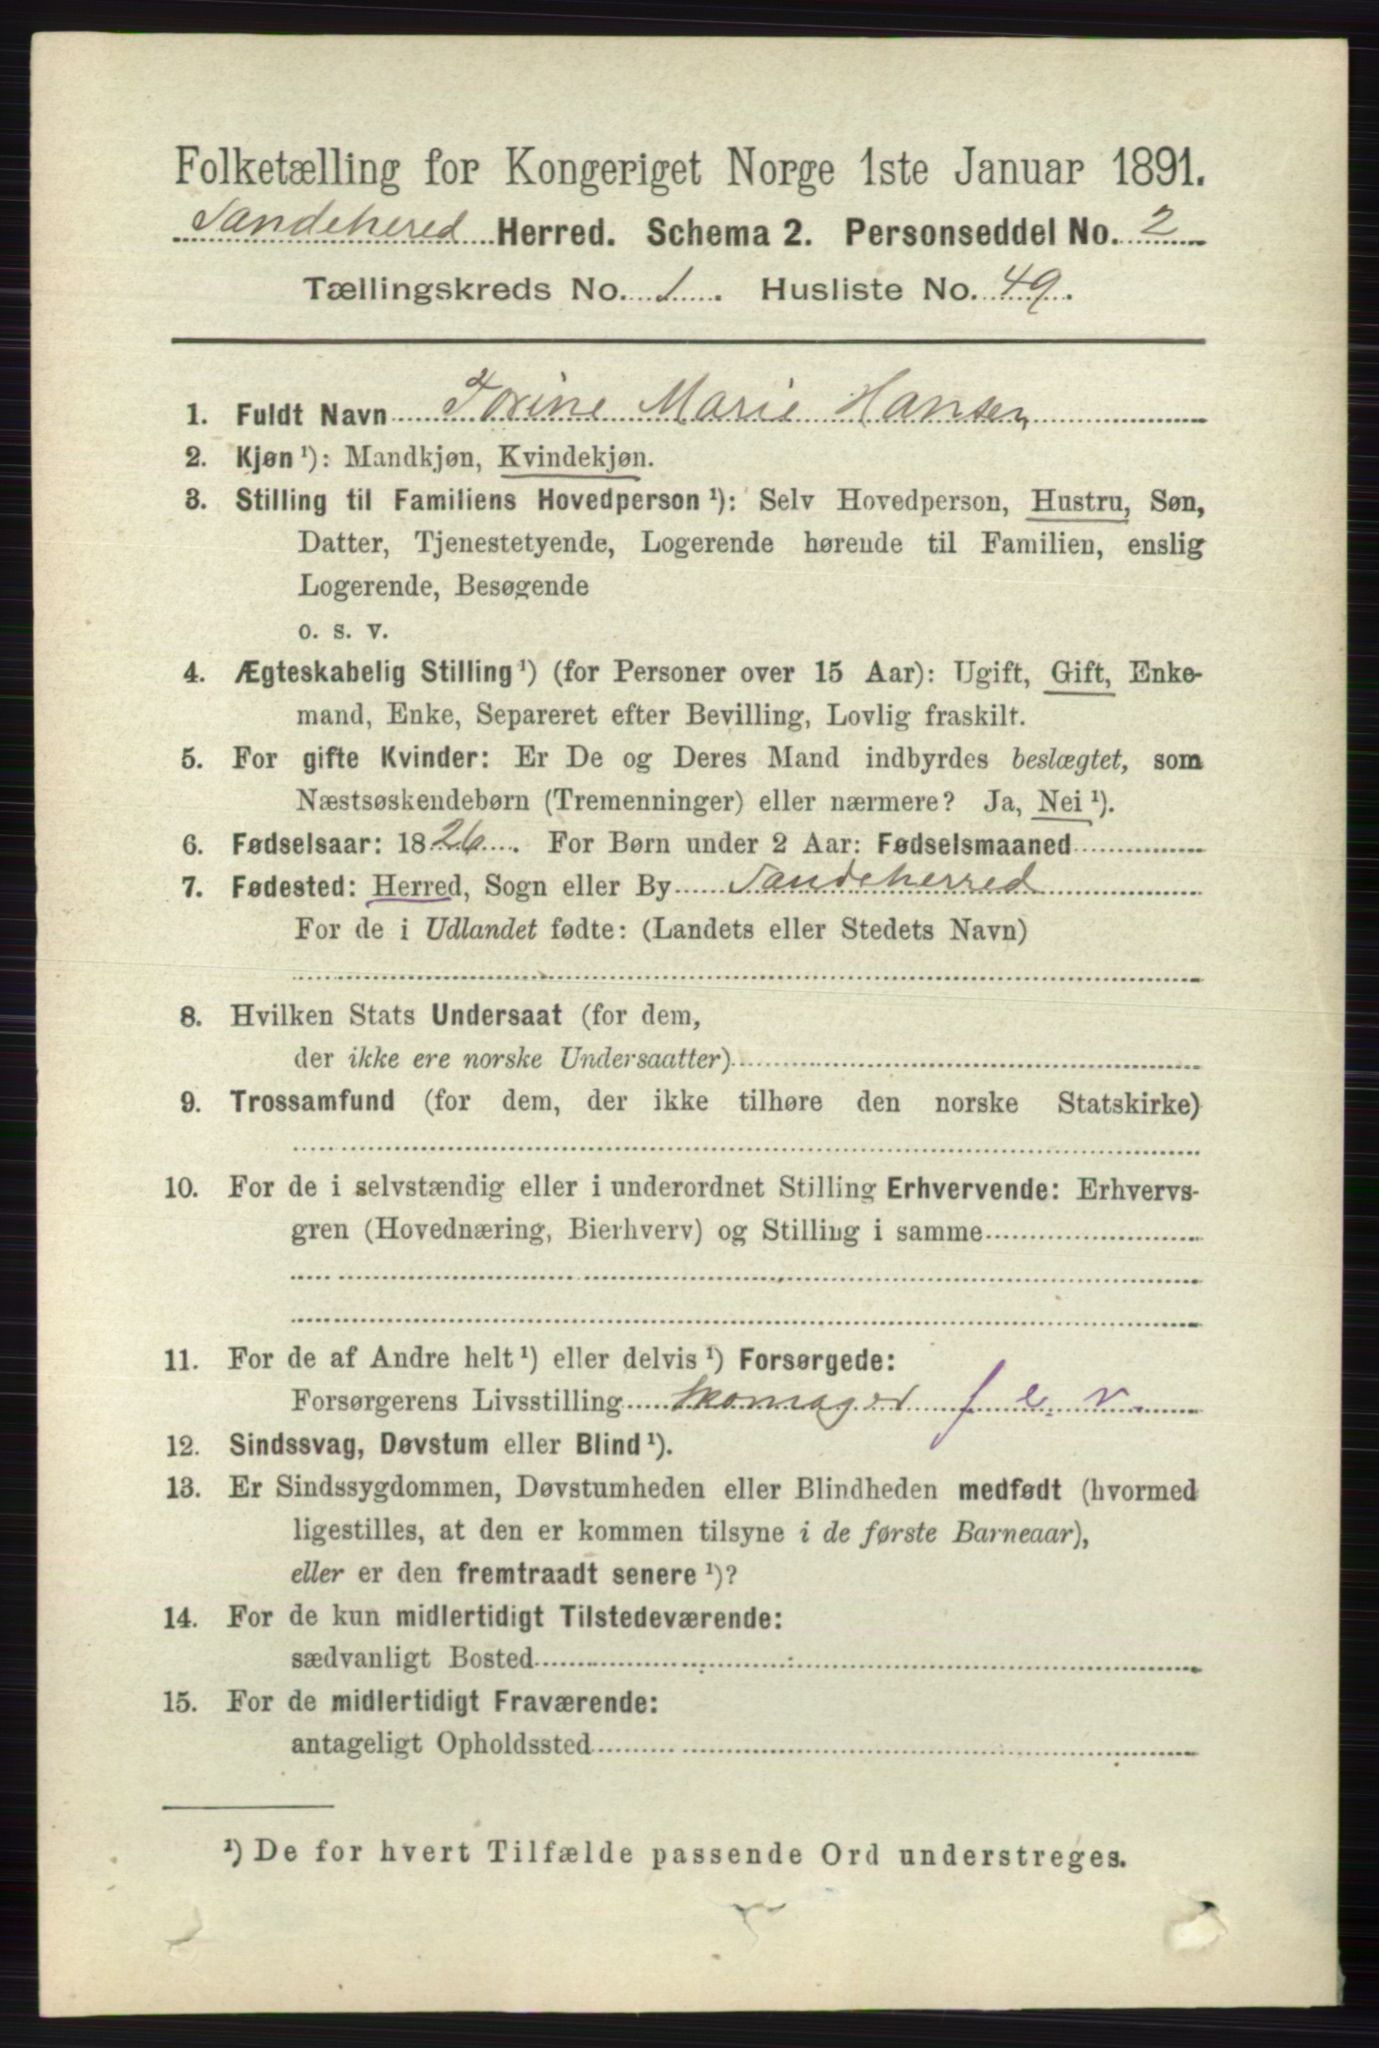 Folketælling for Kongeriget Norge 1ste Januar 1891.
Sandehered Herred. Schema 2. Personseddel No. 2
Tællingskreds No. 1. Husliste No. 49.
1. Fuldt Navn Torine Marie Hansen
2. Kjøn ¹): Mandkjøn, Kvindekjøn.
3. Stilling til Familiens Hovedperson ¹): Selv Hovedperson, Hustru, Søn,
Datter, Tjenestetyende, Logerende hørende til Familien, enslig
Logerende, Besøgende
o. s. v.
4. Ægteskabelig Stilling ¹) (for Personer over 15 Aar): Ugift, Gift, Enke-
mand, Enke, Separeret efter Bevilling, Lovlig fraskilt.
5. For gifte Kvinder: Er De og Deres Mand indbyrdes beslægtet, som
Næstsøskendebørn (Tremenninger) eller nærmere? Ja, Nei ¹).
6. Fødselsaar: 1826. For Børn under 2 Aar: Fødselsmaaned
7. Fødested: Herred, Sogn eller By Sandeherred
For de i Udlandet fødte: (Landets eller Stedets Navn)
8. Hvilken Stats Undersaat (for dem,
der ikke ere norske Undersaatter)
9. Trossamfund (for dem, der ikke tilhøre den norske Statskirke)
10. For de i selvstændig eller i underordnet Stilling Erhvervende: Erhvervs-
gren (Hovednæring, Bierhverv) og Stilling i samme
11. For de af Andre helt ¹) eller delvis ¹) Forsørgede:
Forsørgerens Livsstilling Skomager f. e. v.
12. Sindssvag, Døvstum eller Blind ¹).
13. Er Sindssygdommen, Døvstumheden eller Blindheden medfødt (hvormed
ligestilles, at den er kommen tilsyne i de første Barneaar),
eller er den fremtraadt senere ¹)?
14. For de kun midlertidigt Tilstedeværende:
sædvanligt Bosted
15. For de midlertidigt Fraværende:
antageligt Opholdssted
¹) De for hvert Tilfælde passende Ord understreges.